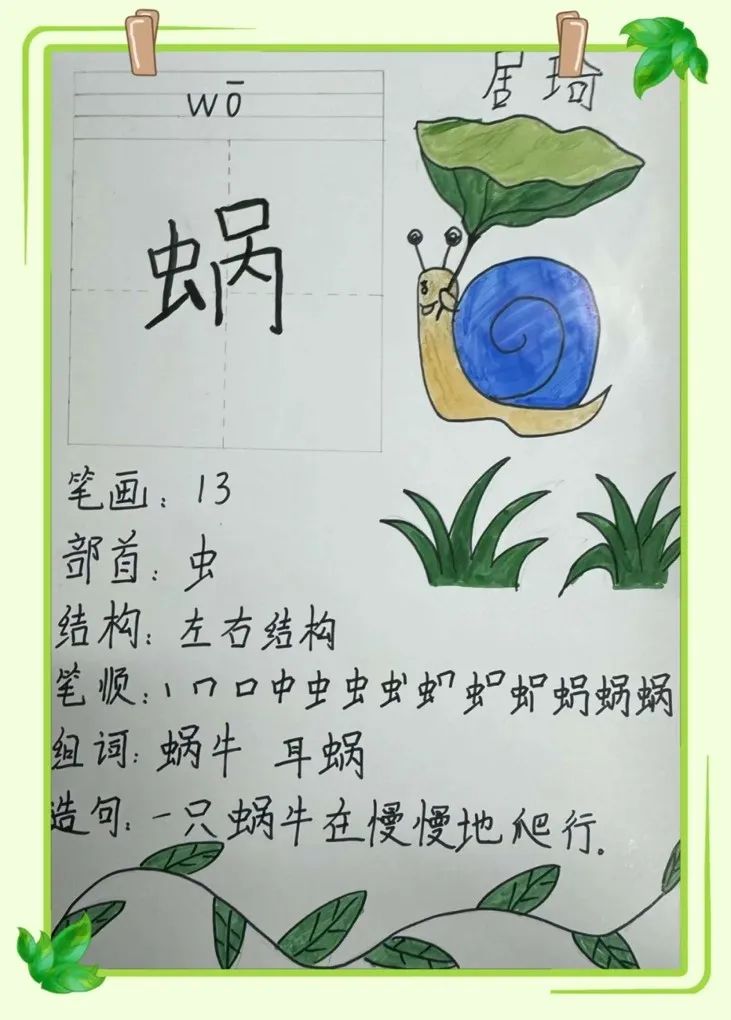 wō
居琦
蜗
笔画：13
部首：虫
结构：左右结构
笔顺：丨 𠃍 口 中 虫 虫 蜗 蜗
组词：蜗牛 耳蜗
造句：一只蜗牛在慢慢地爬行.